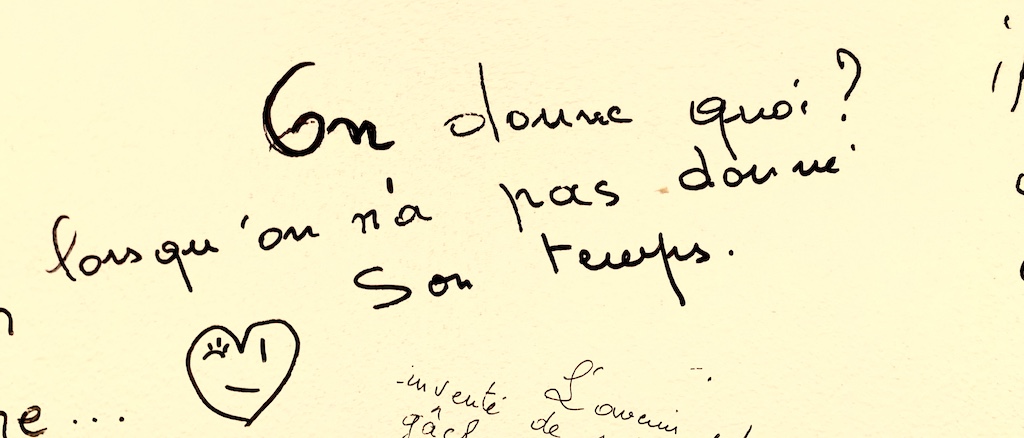 On donne quoi?
lorsqu'on n'a pas donné
son temps.
...
inventé L'avenir
gâch de